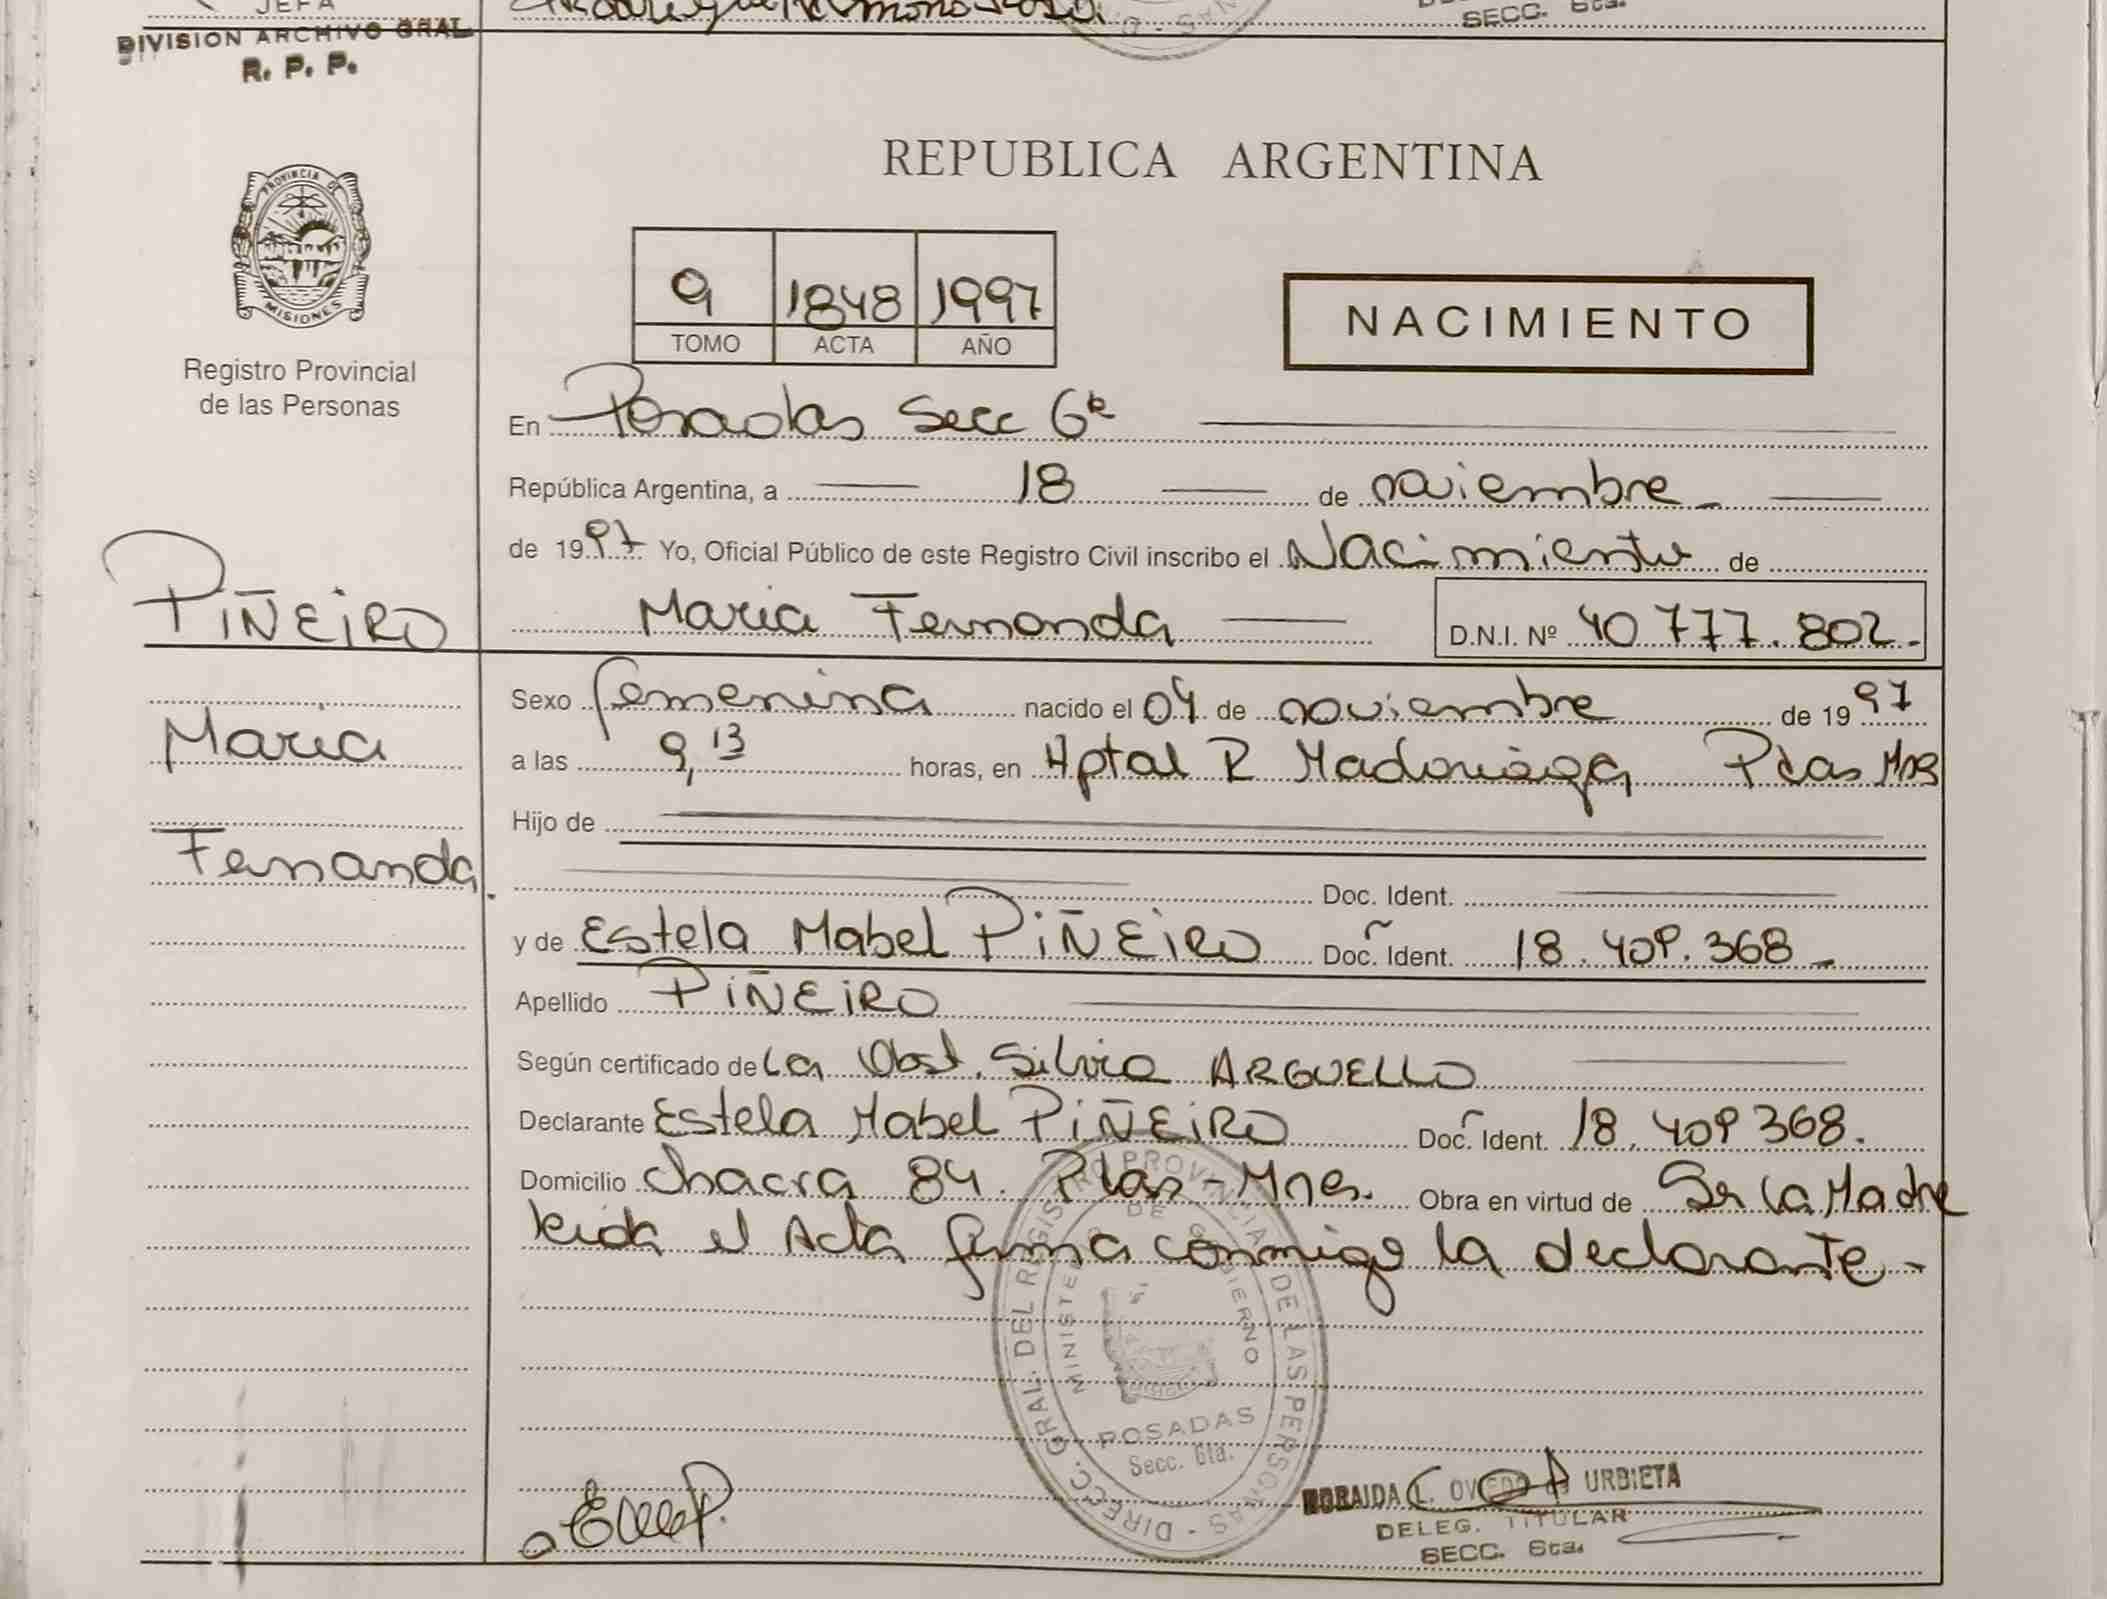 JEFA
DIVISION ARCHIVO GRAL
R. P. P.
SECC. 6ta.
PROVINCIA DE
MISIONES
Registro Provincial
de las Personas
PIÑEIRO
Maria
Fernanda.
REPUBLICA ARGENTINA
9 1848 1997
TOMO ACTA AÑO
NACIMIENTO
En Posadas Secc 6ª
República Argentina, a 18 de noviembre
de 1997 Yo, Oficial Público de este Registro Civil inscribo el Nacimiento de
Maria Fernanda D.N.I. Nº 40 777.802.-
Sexo femenina nacido el 04 de noviembre de 1997
a las 9,13 horas, en Hptal R Madariaga Pdas Mnes
Hijo de
Doc. Ident.
y de Estela Mabel PIÑEIRO Doc. Ident. 18.409.368-
Apellido PIÑEIRO
Según certificado de La Obst. Silvia ARGUELLO
Declarante Estela Mabel PIÑEIRO Doc. Ident. 18.409 368.
Domicilio Chacra 84. Pdas-Mnes. Obra en virtud de Ser la Madre
leida el Acta firma conmigo la declarante-
DIRECC. GRAL. DEL REGISTRO PROVINCIAL DE LAS PERSONAS
MINISTERIO DE GOBIERNO
POSADAS
Secc. 6ta.
URBIETA
DELEG. TITULAR
SECC. 6ta.